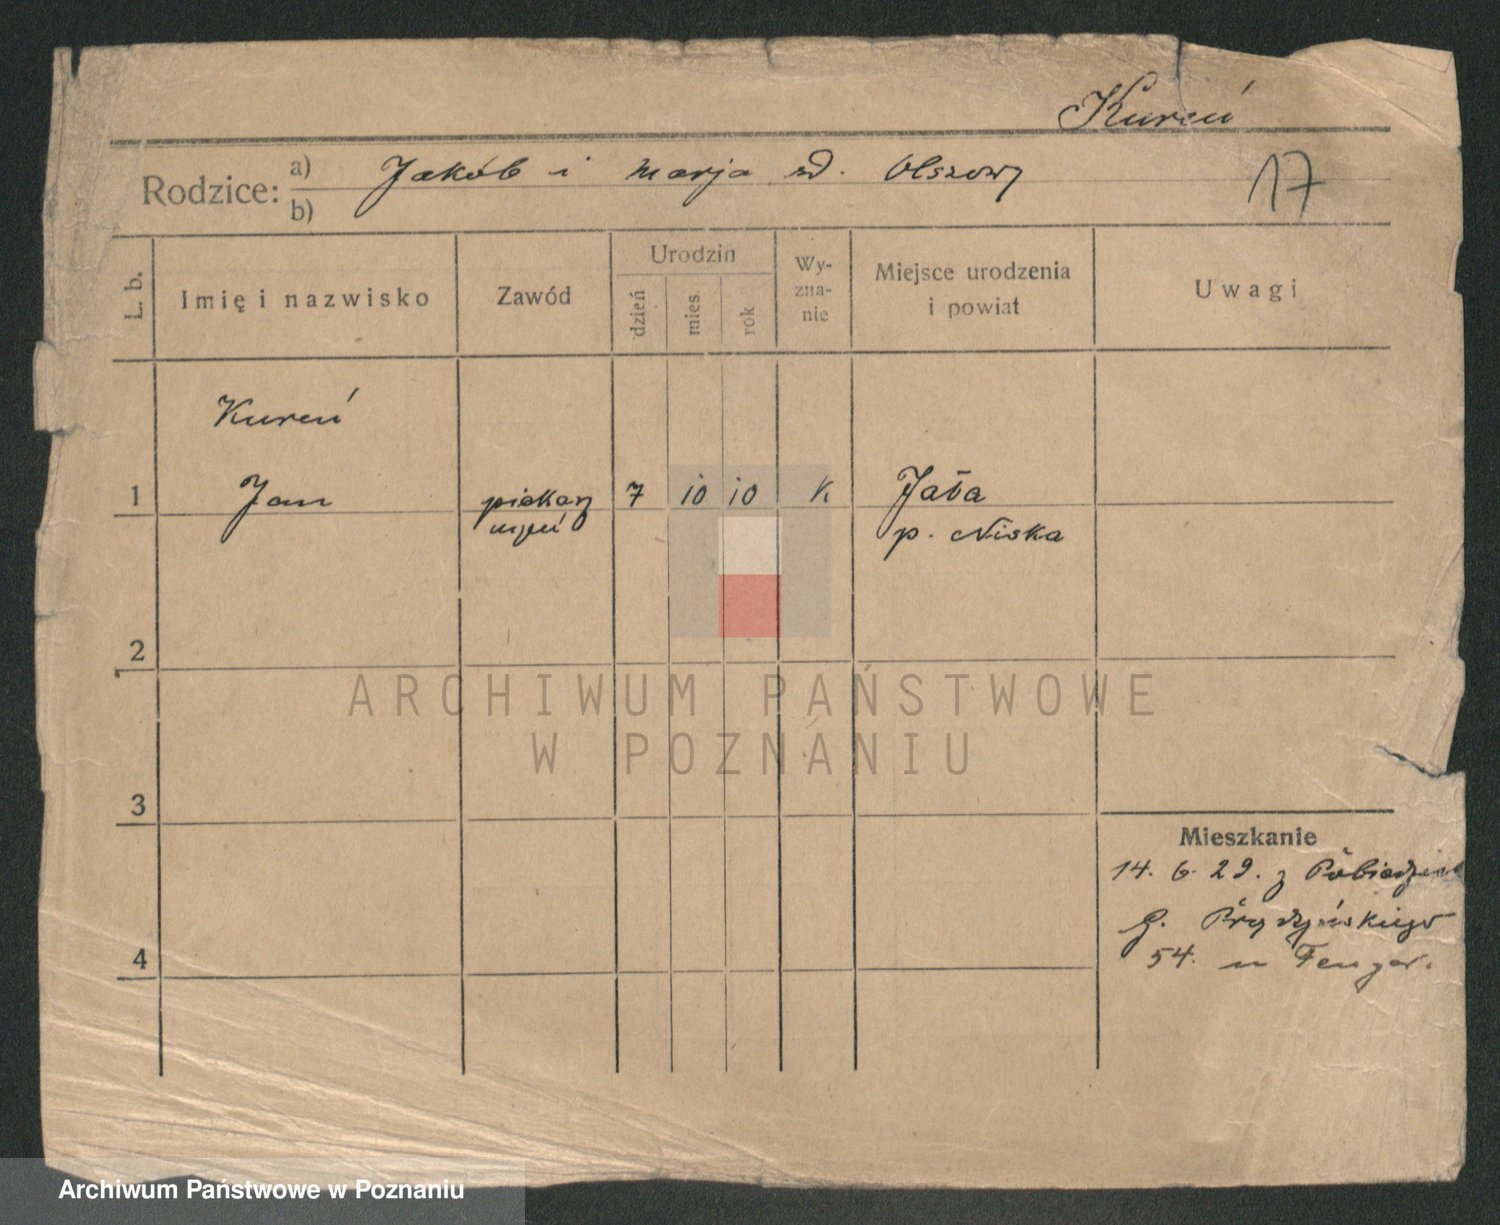 Kureń
Rodzice: a) Jakób i Marja zd. Olszowy
b)
17
L. b.
Imię i nazwisko
Zawód
Urodzin
dzień
mies.
rok
Wy-
zna-
nie
Miejsce urodzenia
i powiat
Uwagi
Kureń
1 Jan piekarz 7 10 10 k. Jata
p. Niska
2
3
4
Mieszkanie
14. 6. 29. z
G. Prądzyńskiego
54.
ARCHIWUM PAŃSTWOWE
W POZNANIU
Archiwum Państwowe w Poznaniu